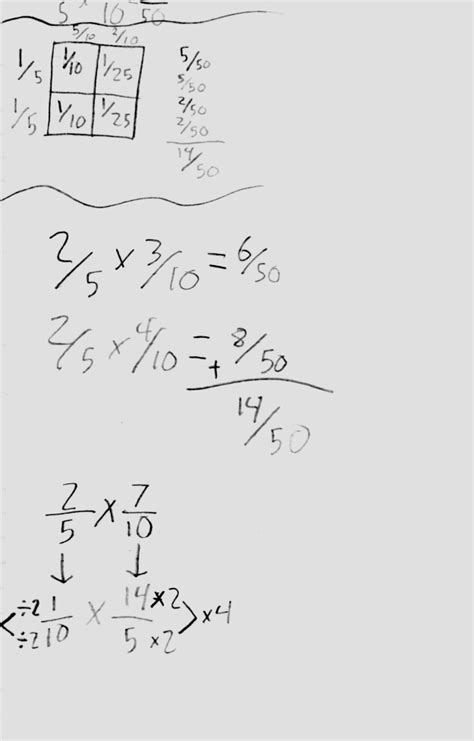 5 × 10 = 50
5/10 2/10
1/5 1/10 1/25 5/50
5/50
1/5 1/10 1/25 2/50
2/50
14/50
2/5 × 3/10 = 6/50
2/5 × 4/10 = + 8/50
14/50
2/5 × 7/10
↓ ↓
÷2 1/10 ÷2 × 14/5 ×2 ×2 > ×4